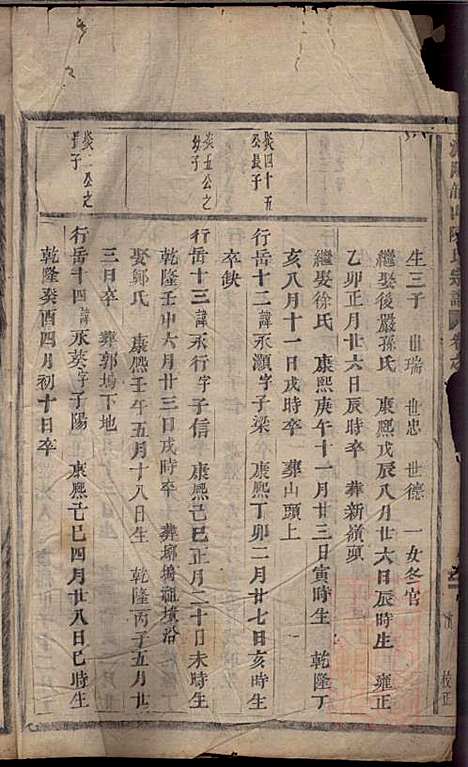 生三子 世瑞 世忠 世德 一女冬官
繼娶後嚴孫氏 康熙戊辰八月廿六日辰時生 雍正
乙卯正月廿六日辰時卒 葬新嶺頭
繼娶徐氏 康熙庚午十一月廿三日寅時生 乾隆丁
亥八月十一日戌時卒 葬山頭上
炎四十五
公長子
行岳十二諱永灝字子梁 康熙丁卯二月廿七日亥時生
卒缺
炎五公之
幼子
行岳十三諱永行字子信 康熙己巳正月二十日未時生
乾隆壬申六月廿三日戌時卒 葬塚塢祖墳沿
娶鄭氏 康熙壬午五月十八日生 乾隆丙子五月廿
三日卒 葬郭塢下地
炎二公之
長子
行岳十四諱永葵字丁陽 康熙己巳四月廿八日巳時生
乾隆癸酉四月初十日卒
校正